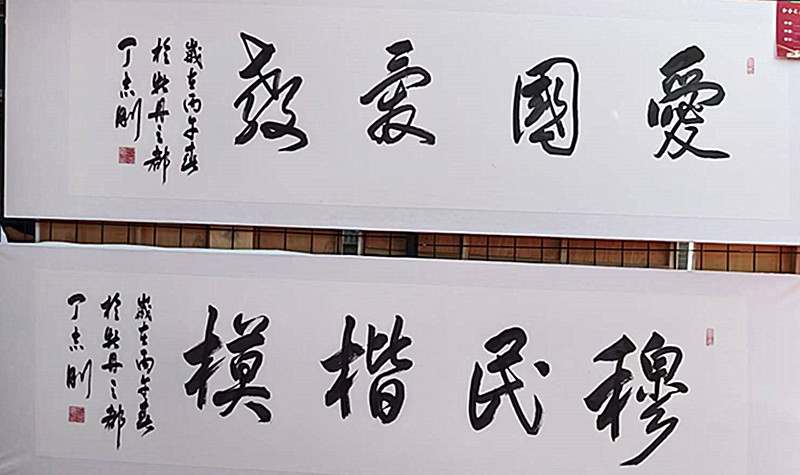 愛國愛教
歲在丙午春
於牡丹之都
丁志刚
穆民楷模
歲在丙午春
於牡丹之都
丁志刚